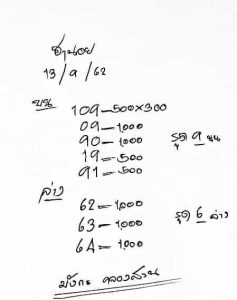 ฮานอย
13/9/62
บน
109-500×300
09-1,000
90-1,000
19=500
91=500
รูด 9 บน
ล่าง
62-1,000
63-1,000
64-1,000
รูด 6 ล่าง
มังกร คลองสวน